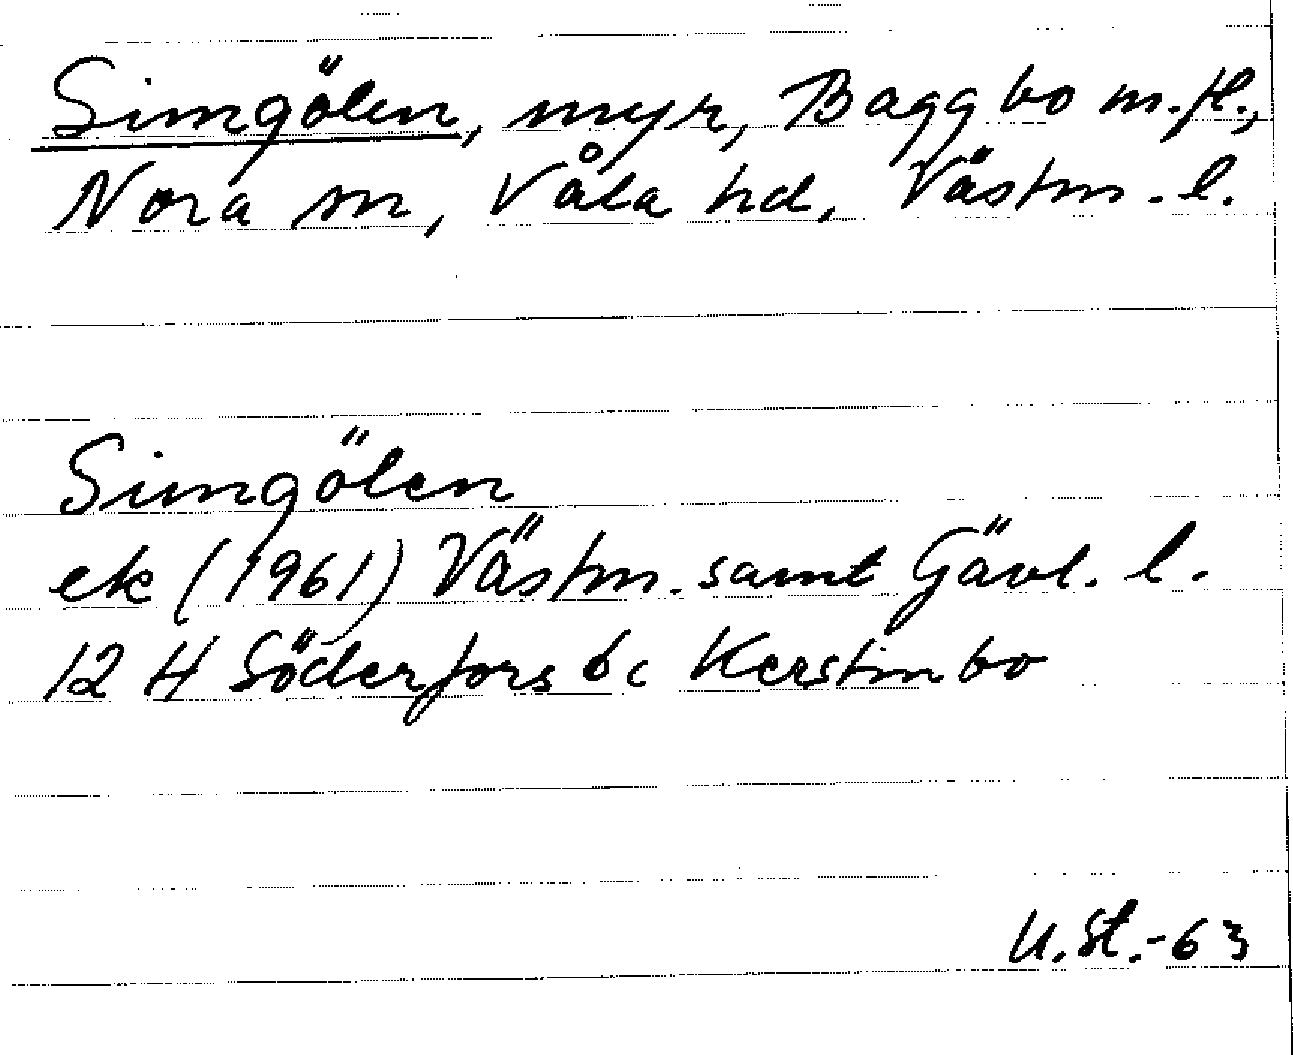 Simgölen, myr, Baggbo m.fl.,
Nora sn, Våla hd, Västm. l.
Simgölen
ek (1961) Västm. samt Gävl. l.
12 H Söderfors 6 c Kerstinbo
U.St.-63